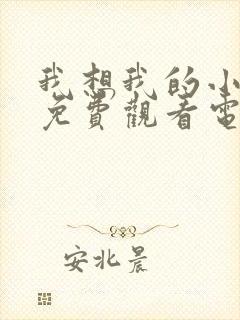 我想我的小
免費觀看電
安北晨